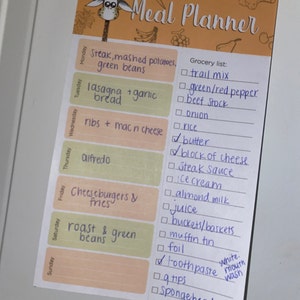 Meal Planner
Monday
steak, mashed potatoes,
green beans
Tuesday
lasagna + garlic
bread
Wednesday
ribs + mac n cheese
Thursday
alfredo
Friday
Cheeseburgers &
fries
Saturday
roast & green
beans
Sunday
Grocery list:
trail mix
green/red pepper
beef stock
onion
rice
butter
block of cheese
steak sauce
ice cream
almond milk
juice
buckets/baskets
muffin tin
foil
toothpaste
white
mouth
wash
q tips
sponge